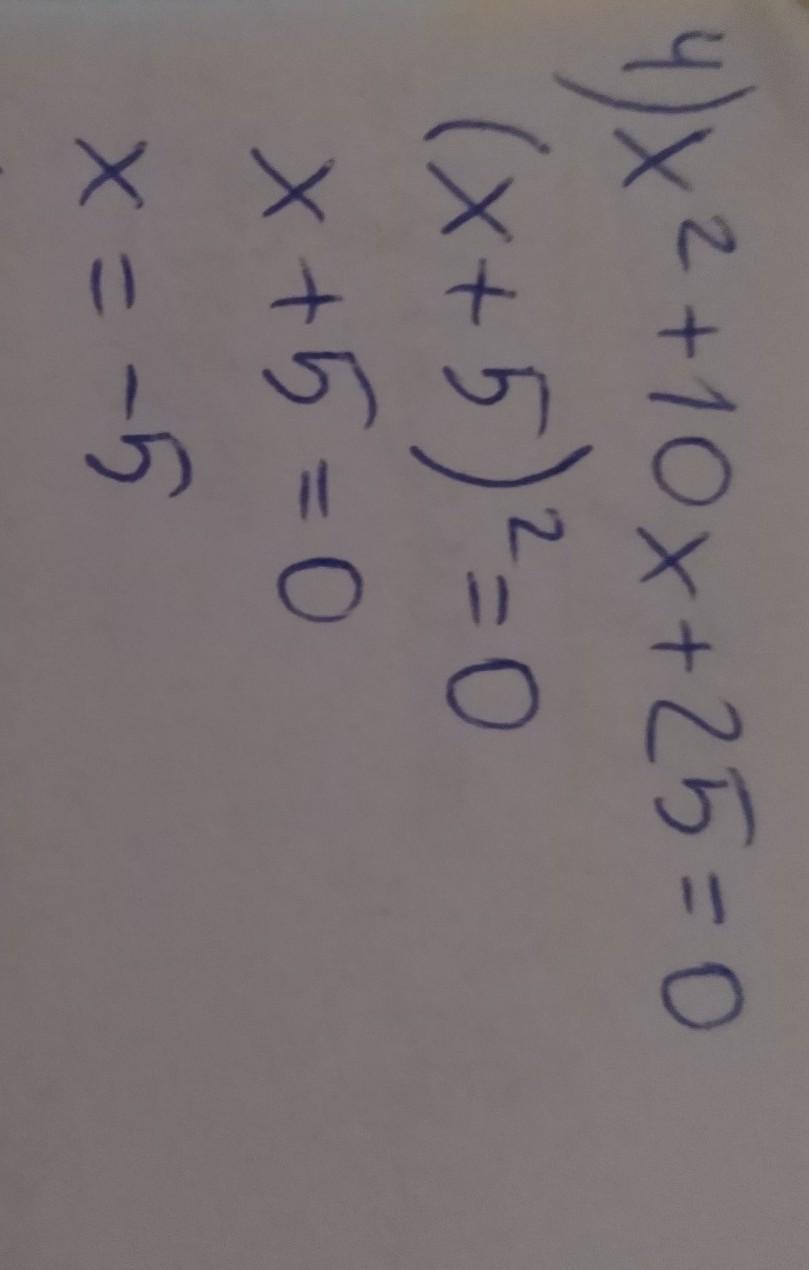 4) x² + 10x + 25 = 0
(x + 5)² = 0
x + 5 = 0
x = -5